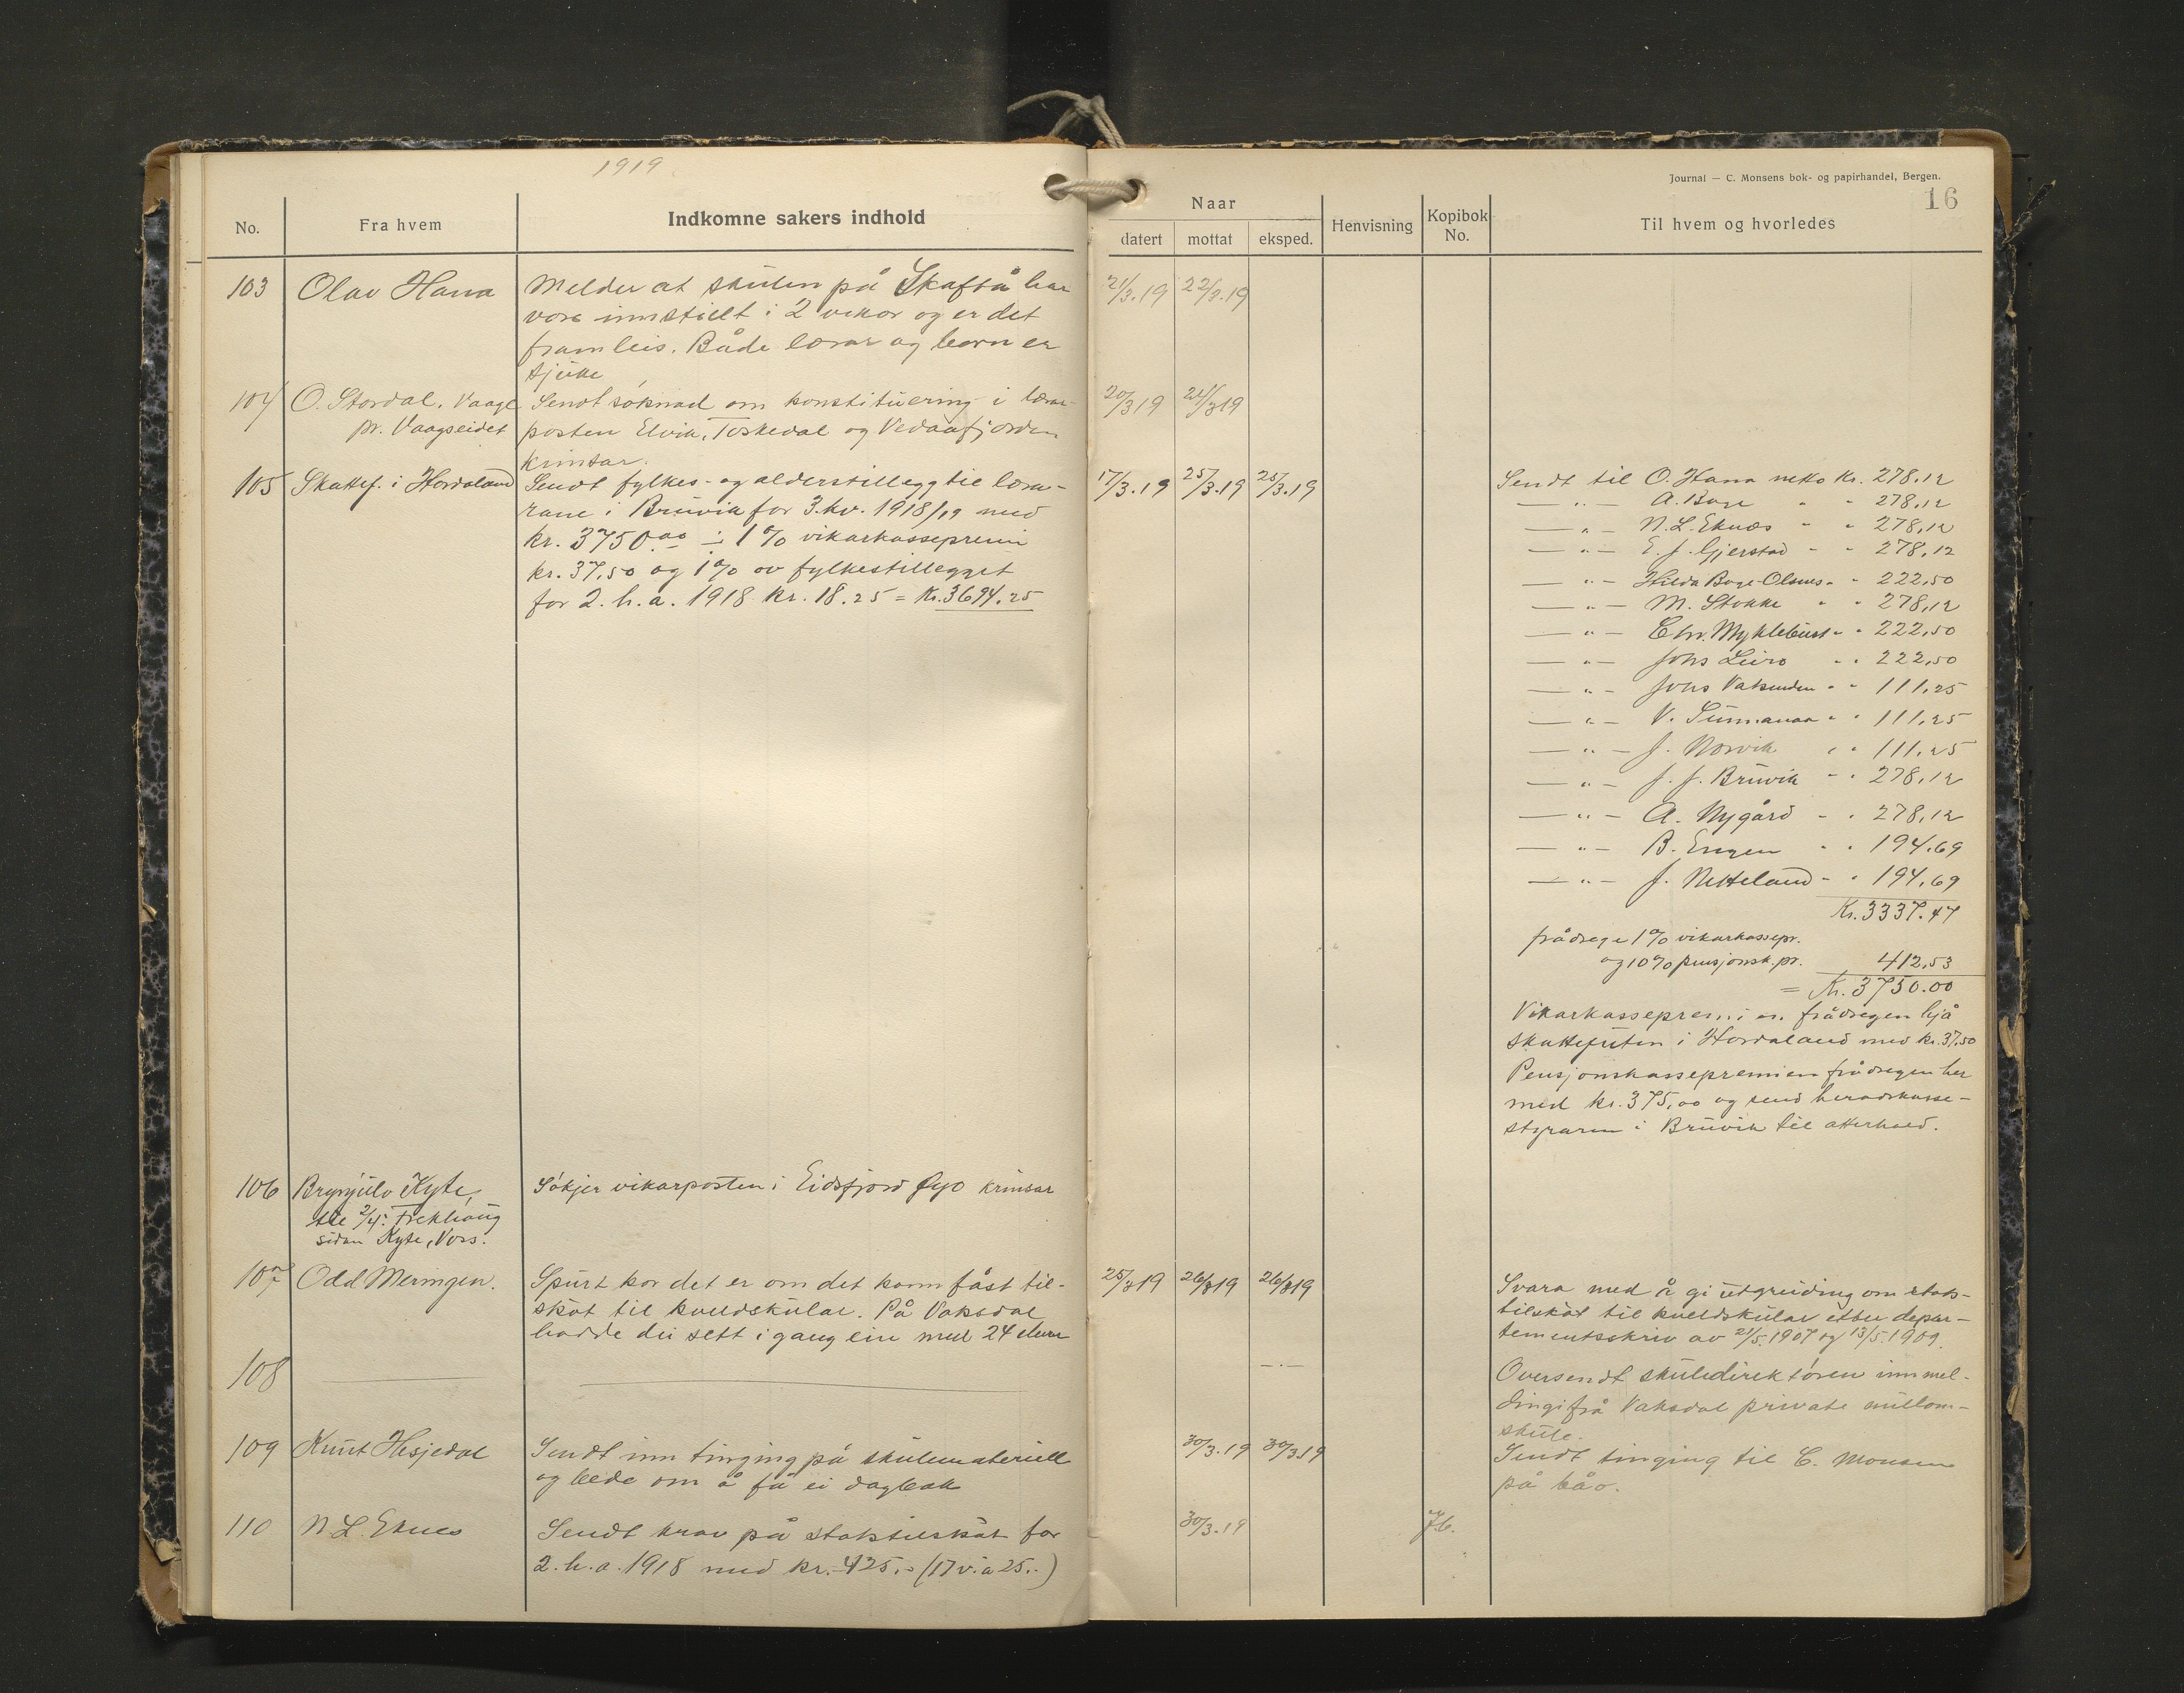 1919
Journal — C. Monsens bok- og papirhandel, Bergen.
16
No.
Fra hvem
Indkomne sakers indhold
Naar
datert
mottat
eksped.
Henvisning
Kopibok No.
Til hvem og hvorledes
103 Olav Hana
Melder at skulen på Skaftå har
vore innstillt i 2 vekor og er det
framleis. Både lærar og born er
sjuke
21/3.19 22/3.19
104 O. Stordal, Vaage
pr. Vaagseidet
Sendt søknad om konstituering i lærar-
posten Elvik, Toskedal og Vedaafjorden
krinsar.
20/3 19 24/3 19
105 Skattef. i Hordaland
Sendt fylkes- og alderstillegg til læra-
rane i Bruvik for 3. kv. 1918/19 med
kr. 3750.00 ÷ 1% vikarkassepremi
kr. 37,50 og 1% av fylkestillegget
for 2. h. a. 1918 kr. 18.25 = Kr. 3694.25
17/3.19 25/3.19 25/3.19
Sendt til O. Hana netto Kr. 278.12
— " — A. Boge " " 278,12
— " — N. L. Eknes " " 278,12
— " — E. J. Gjerstad " " 278,12
— " — Hilda Boge-Olsnes " " 222,50
— " — M. Stokke " " 278,12
— " — Chr. Myklebust " " 222,50
— " — Johs Leiro " " 222,50
— " — Johs Vaksinden " " 111,25
— " — V. Sunnanaa " " 111,25
— " — J. Norvik " " 111,25
— " — J. J. Bruvik " " 278,12
— " — A. Nygård " " 278,12
— " — B. Engen " " 194.69
— " — J. Netteland " " 194,69
Kr. 3337.47
frådrege 1% vikarkassepr.
og 10% pensjonsk. pr. 412,53
= Kr. 3750.00
Vikarkassepremi er frådregen hjå
skattefuten i Hordaland med kr. 37.50
Pensjonskassepremien frådregen her
med kr. 375,00 og send heradskasse-
styraren i Bruvik til atterhald.
106 Brynjulv Kyte,
til 2/4: Trekhaug
sidan Kyte, Voss.
Søkjer vikarposten i Eidsfjord Øyo krinsar
107 Odd Meringen.
Spurt kor det er om det kann fåst til-
skot til kveldskular. På Vaksdal
hadde dei sett i gang ein med 24 elevar
25/3 19 26/3 19 26/3 19
Svara med å gi utgreiding om stats-
tilskot til kveldskular etter depar-
tementsskriv av 21/5.1907 og 13/5.1909.
108
— . —
Oversendt skuledirektøren innmel-
dingi frå Vaksdal private millom-
skule.
109 Knut Hesjedal
Sendt inn tinging på skulemateriell
og bede om å få ei dagbok
30/3.19 30/3 19
Sendt tinging til C. Monsen
på båo.
110 N. L. Eknes
Sendt krav på statstilskot for
2. h. a. 1918 med kr. 425.- (17 v. a 25.-)
30/3.19
76.